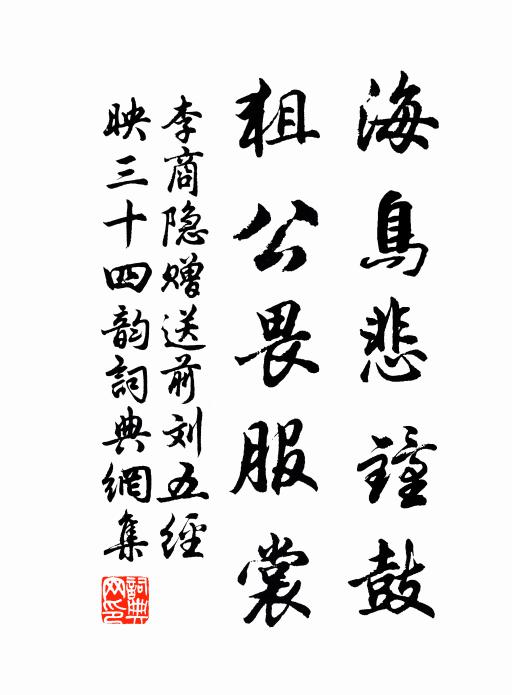 海鳥悲鐘鼓
狙公畏服裳
李商隐赠送前刘五經
映三十四韵詞典網集
詞典網印